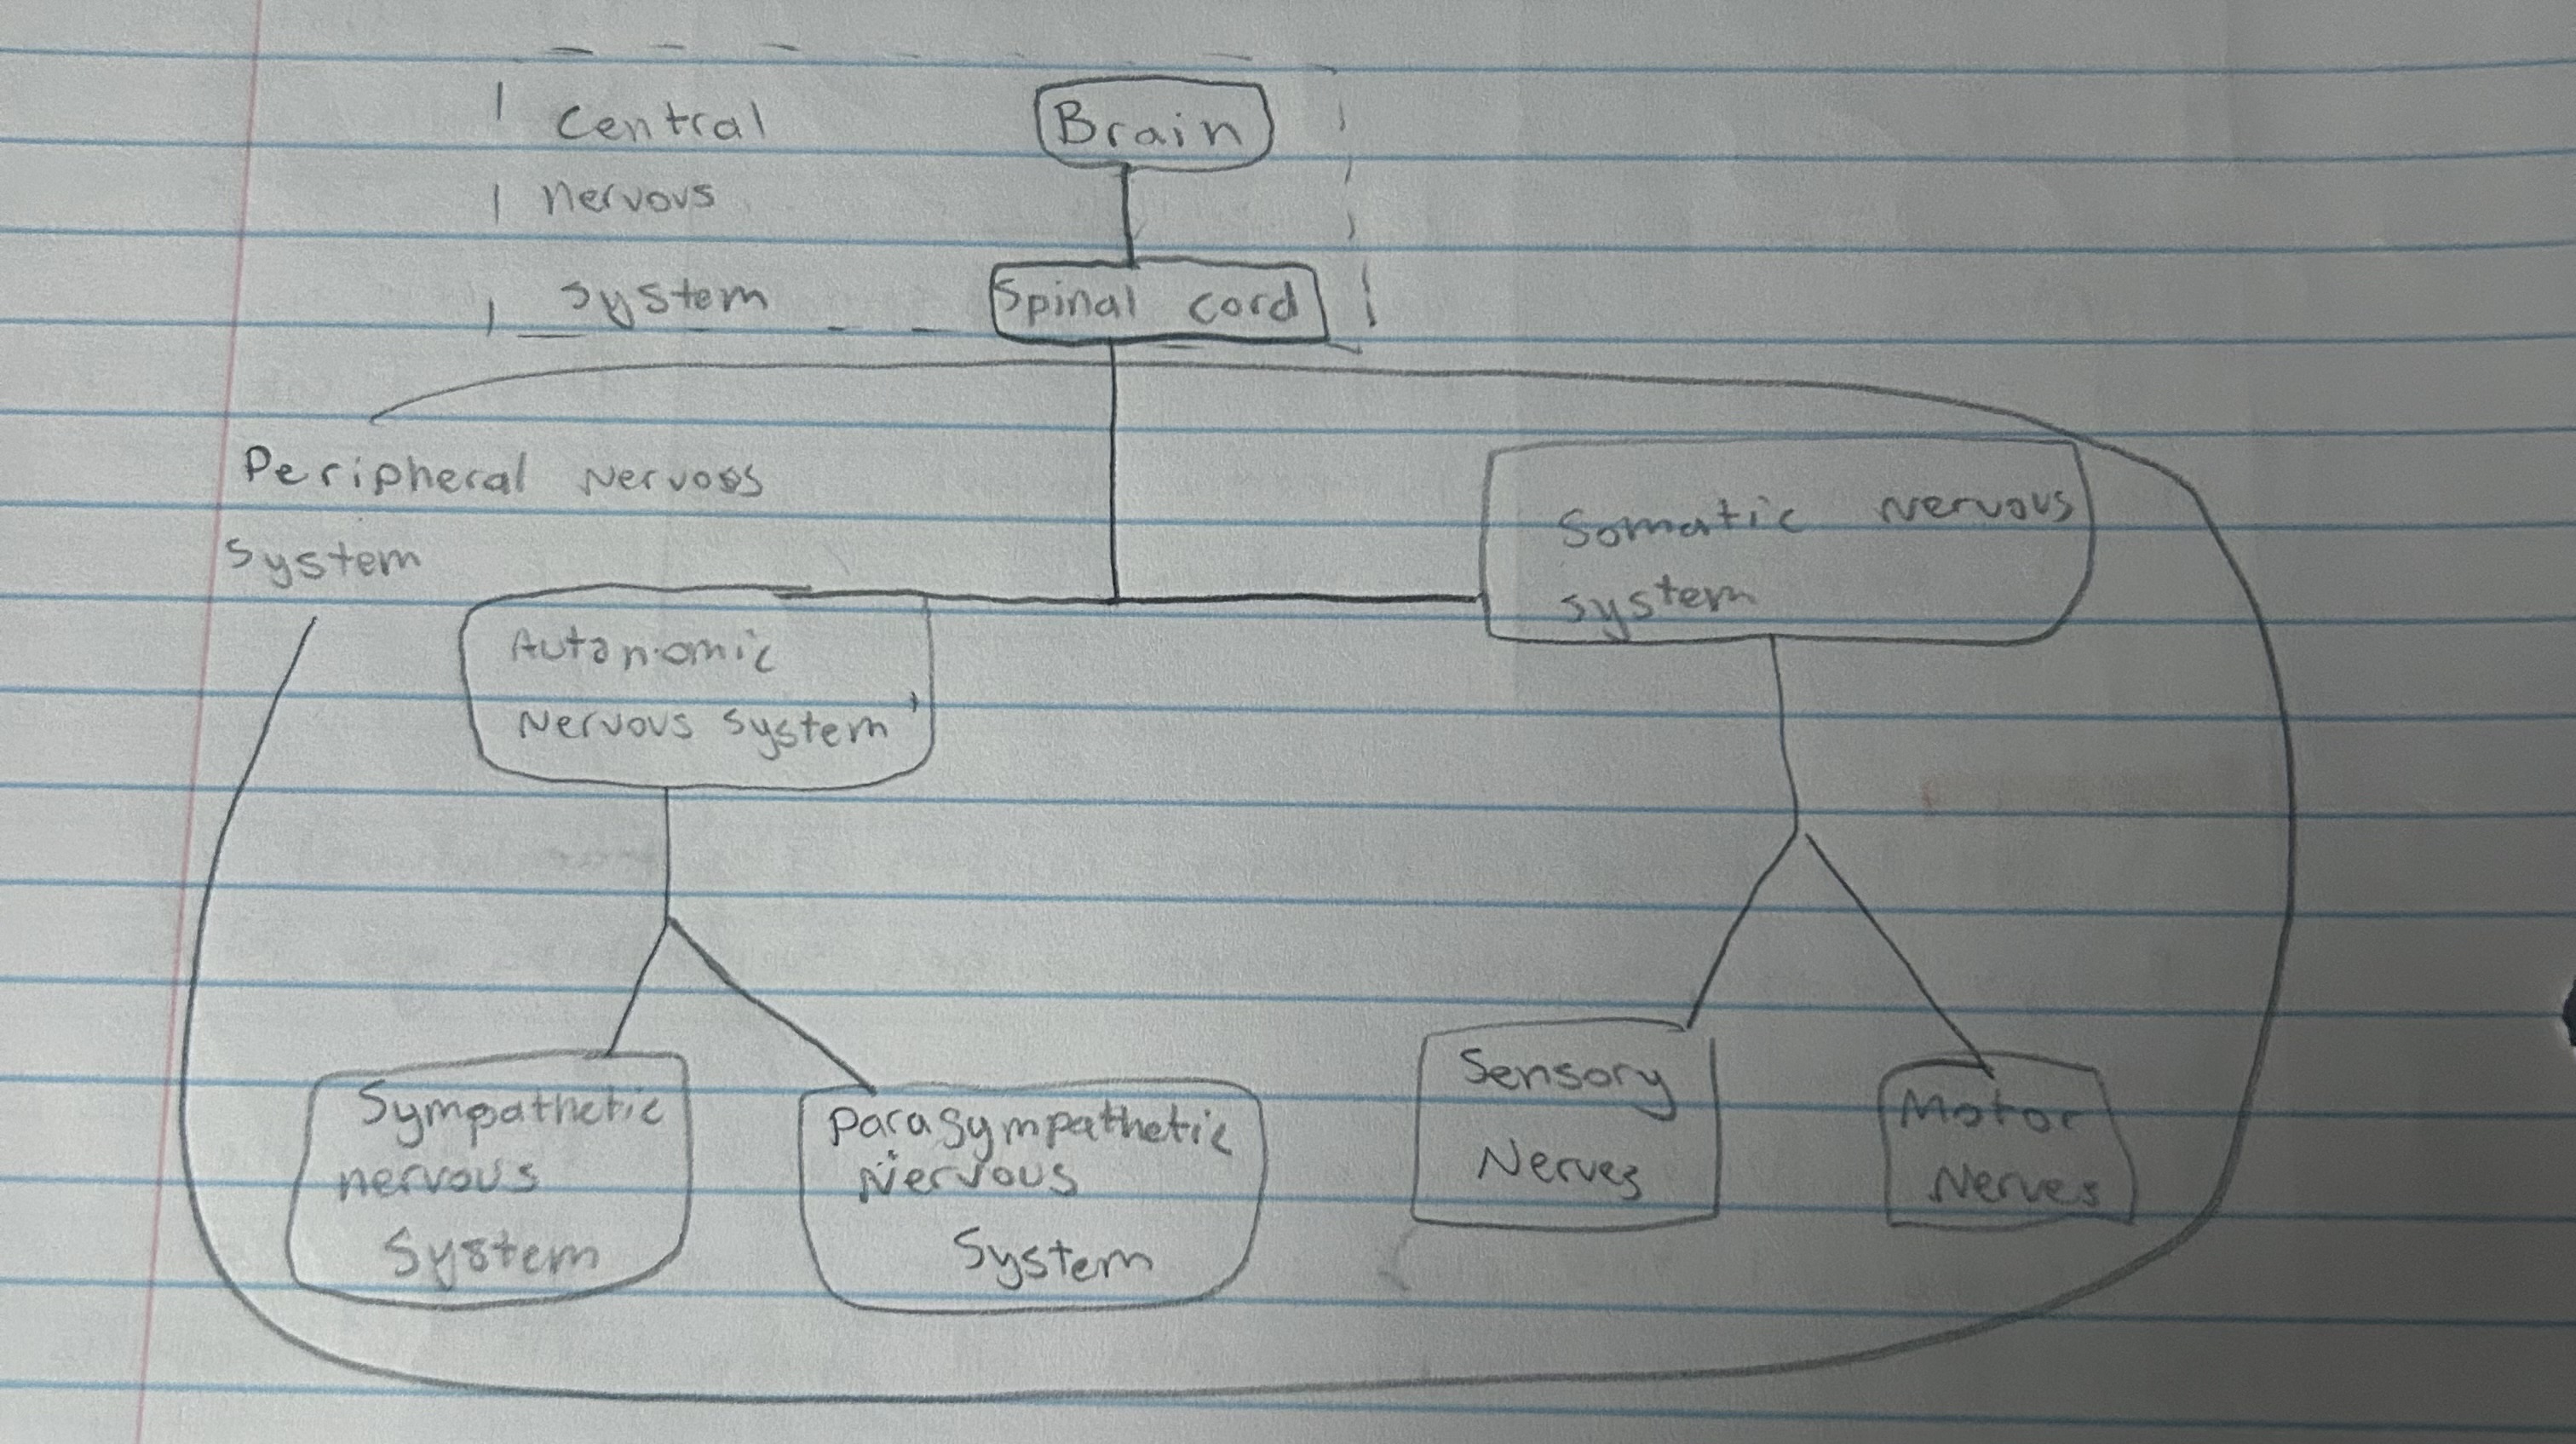 Central
Brain
nervous
system
Spinal cord
Peripheral Nervoss
System
Somatic Nervous
system
Autonomic
Nervous System
Sympathetic
nervous
System
parasympathetic
Nervous
System
Sensory
Nerves
Motor
Nerves